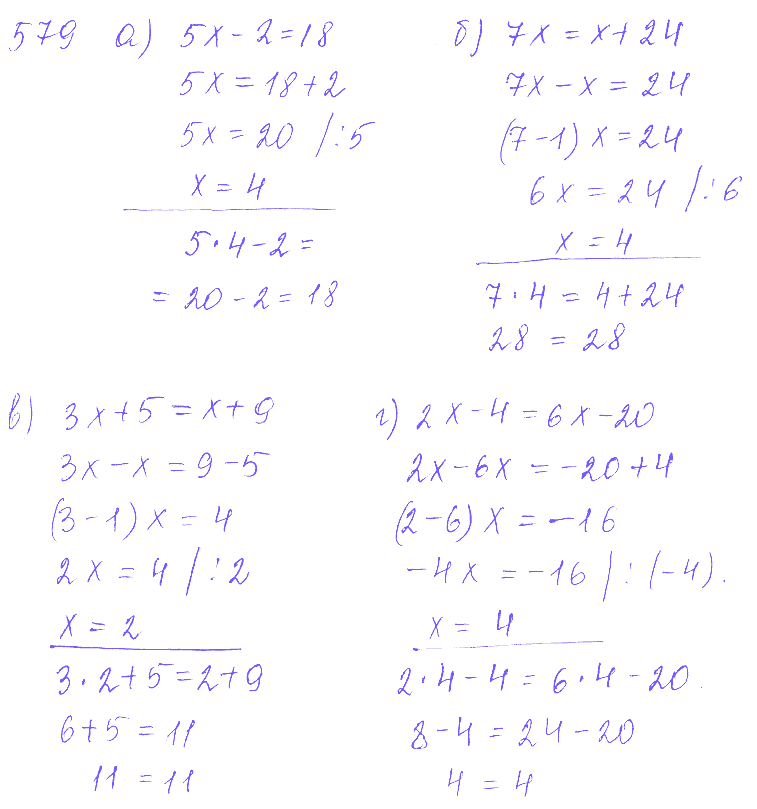 579 а) 5x - 2 = 18
5x = 18 + 2
5x = 20 /:5
x = 4
5·4 - 2 =
= 20 - 2 = 18
б) 7x = x + 24
7x - x = 24
(7 - 1) x = 24
6x = 24 /:6
x = 4
7·4 = 4 + 24
28 = 28
в) 3x + 5 = x + 9
3x - x = 9 - 5
(3 - 1) x = 4
2x = 4 /:2
x = 2
3·2 + 5 = 2 + 9
6 + 5 = 11
11 = 11
г) 2x - 4 = 6x - 20
2x - 6x = -20 + 4
(2 - 6) x = -16
-4x = -16 /:(-4).
x = 4
2·4 - 4 = 6·4 - 20.
8 - 4 = 24 - 20
4 = 4